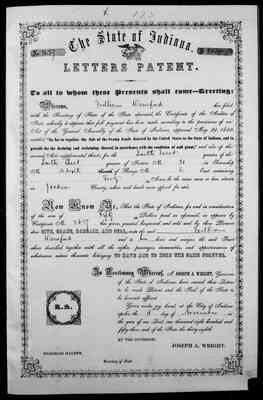 The State of Indiana,
LETTERS PATENT.
To all to whom these Presents shall come—Greeting:
Whereas, William Crawford has filed
with the Secretary of State of the State aforesaid, the Certificate of the Auditor of
State, whereby it appears that full payment has been made according to the provisions of an
Act of the General Assembly of the State of Indiana, approved May 29, 1852,
entitled "An Act to regulate the Sale of the Swamp Lands donated by the United States to the State of Indiana, and to
provide for the draining and reclaiming thereof in accordance with the condition of said grant," and also of the
several Acts supplemental thereto, for the South West
quarter of Section No. in Township
No. of Range No. containing
Forty Acres, be the same more or less, situate
in County, when said lands were offered for sale.
Now Know Ye, That the State of Indiana, for and in consideration
of the sum of Fifty Dollars, paid as aforesaid, as appears by
Certificate No. has given, granted, bargained and sold, and by these Presents
does GIVE, GRANT, BARGAIN, AND SELL, unto the said William
Crawford and to heirs and assigns, the said Tract
above described, together with all the rights, privileges, immunities, and appurtenances of
whatsoever nature thereunto belonging, TO HAVE AND TO HOLD THE SAME FOREVER.
In Testimony Whereof, I, JOSEPH A. WRIGHT, Governor
of the State of Indiana, have caused these Letters
to be made Patent, and the Seal of the State to
be hereunto affixed.
Given under my hand, at the City of Indianapolis,
the day of November in
the year of our Lord, one thousand eight hundred and
fifty- and of the State the thirty-eighth
BY THE GOVERNOR:
JOSEPH A. WRIGHT.
Secretary of State.